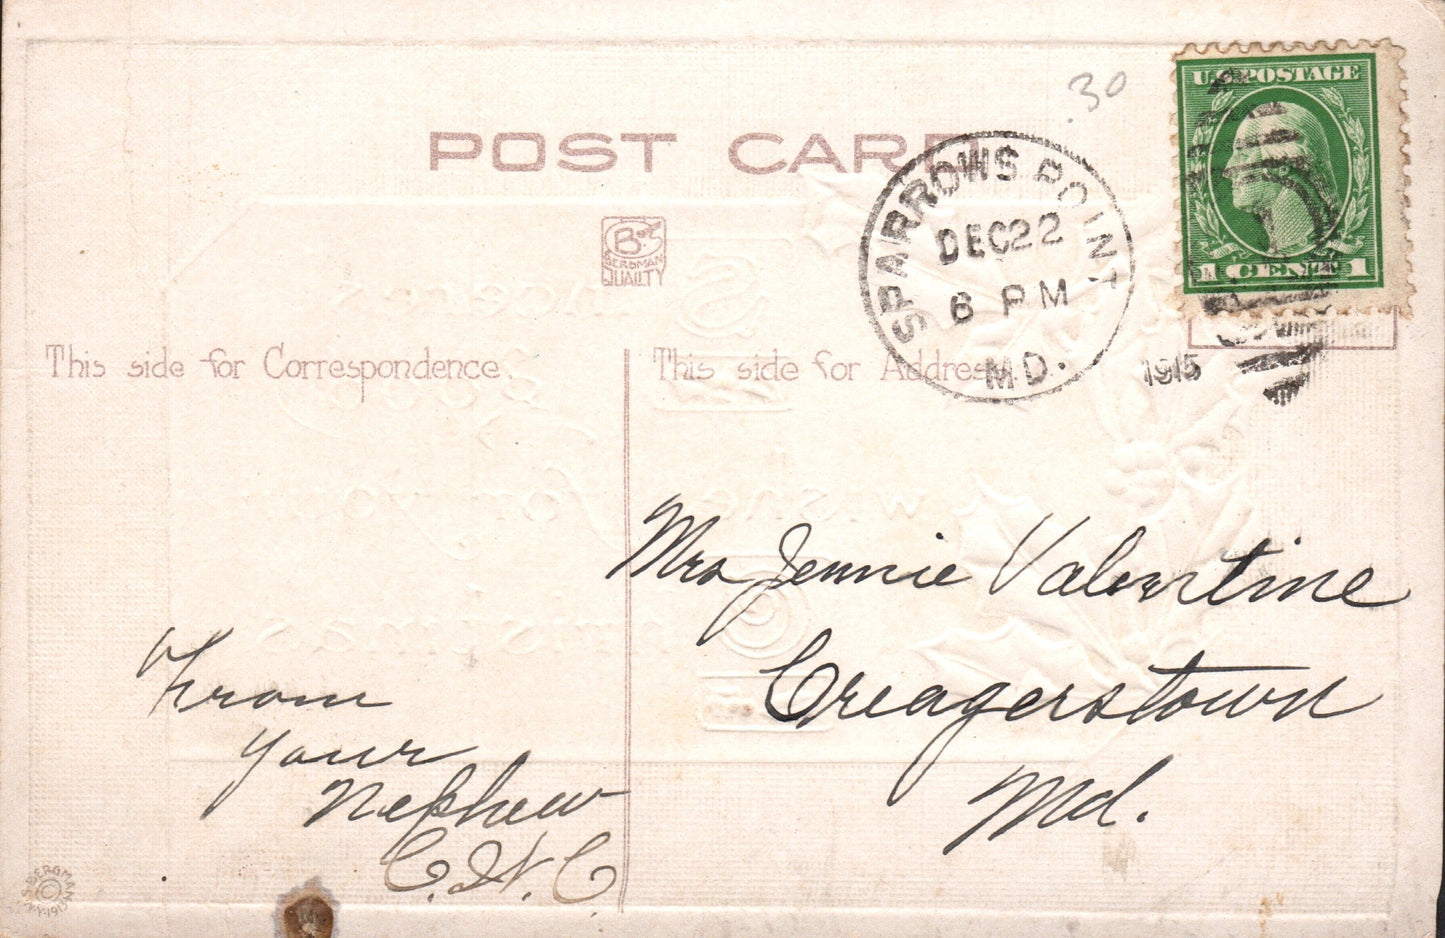 .30
U.S. POSTAGE
1 CENT 1
POST CARD
SPARROWS POINT
DEC 22
6 PM
MD.
1915
B
BERGMAN
QUALITY
This side for Correspondence.
This side for Address
Mrs Jennie Valentine
Creagerstown
Md.
From
your
Nephew
C. H. C.
S. BERGMAN
©
N.Y. 191